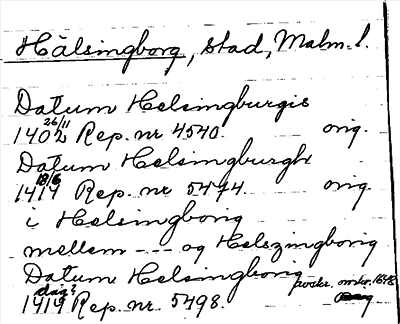 Hälsingborg, stad, Malm. l.
Datum Helsingburgis
26/11
1402 Rep. nr 4540. orig.
Datum Helsingburgh
18/6
1414 Rep. nr 5474. orig.
i Helsingborig
mellem --- og Helszingborig
Datum Helsingborig
dag? avskr. omkr. 1648
1414 Rep. nr. 5498.